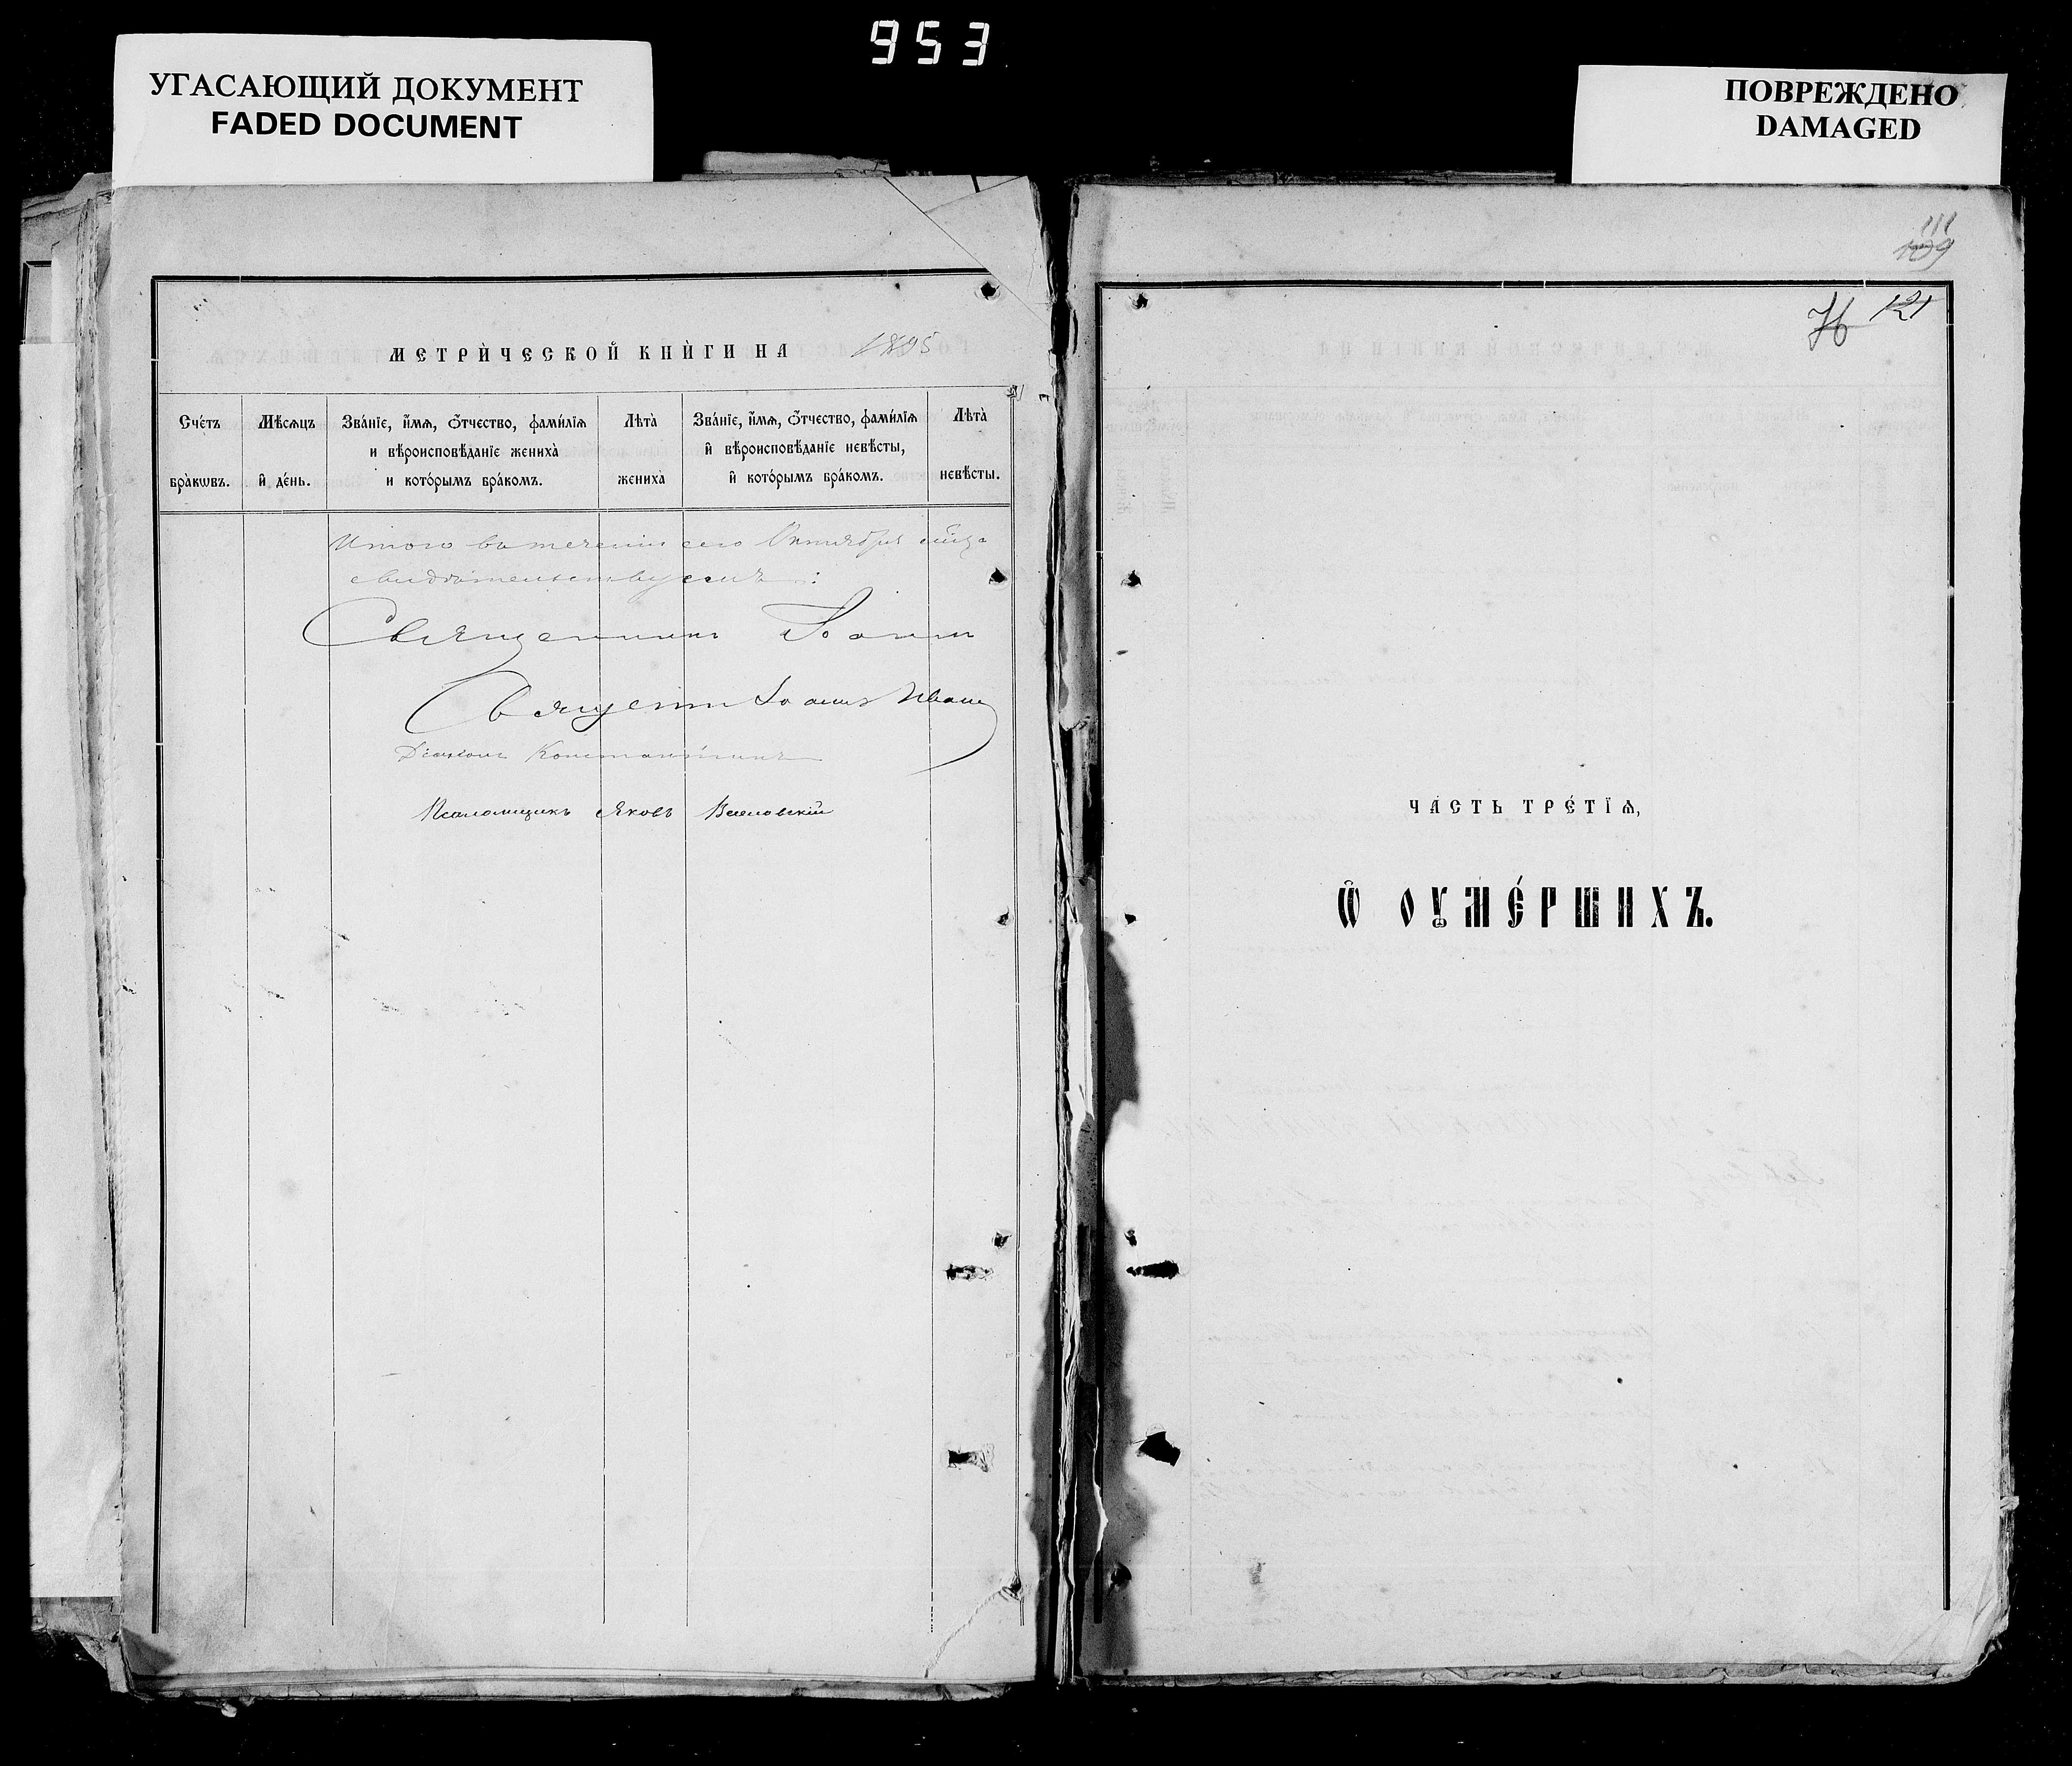 953
УГАСАЮЩИЙ ДОКУМЕНТ
FADED DOCUMENT
ПОВРЕЖДЕНО
DAMAGED
МЕТРИ́ЧЕСКОЙ КНИ́ГИ НА 1895
Сче́тъ бра̀кѡвъ.
Мѣ́сяцъ и҆ де́нь.
Зва́нїе, и҆́мѧ, ѻ҆́тчество, фами́лїѧ
и вѣроисповѣ́данїе жениха̀
и кото́рымъ бра́комъ.
Лѣта̀ жениха̀
Зва́нїе, и҆́мѧ, ѻ҆́тчество, фами́лїѧ
и҆ вѣроисповѣ́данїе невѣ́сты,
и҆ кото́рымъ бра́комъ.
Лѣта̀ невѣ́сты.
Итого въ теченіи сего Октября
свидѣтельствуемъ:
Священникъ Іоаннъ
Священн Іоаннъ
Діаконъ Константинъ
Псаломщикъ Яковъ
111
109
121
ЧА́СТЬ ТРЕ́ТЇѦ,
Ѽ ОУ҆МЕ́РШИХЪ.